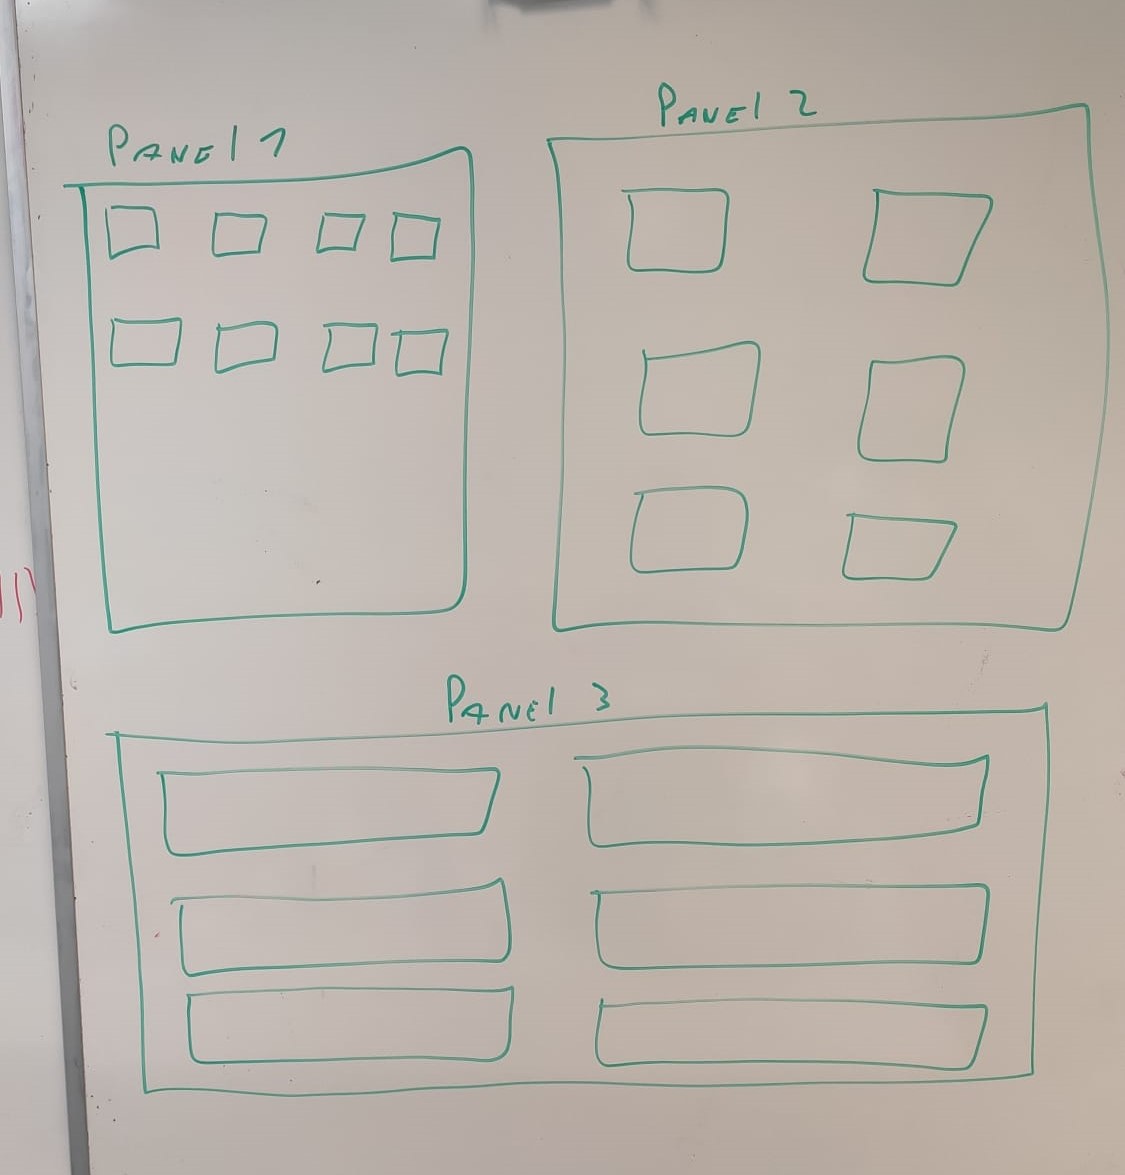 PANEl 1
PANEl 2
PANEl 3